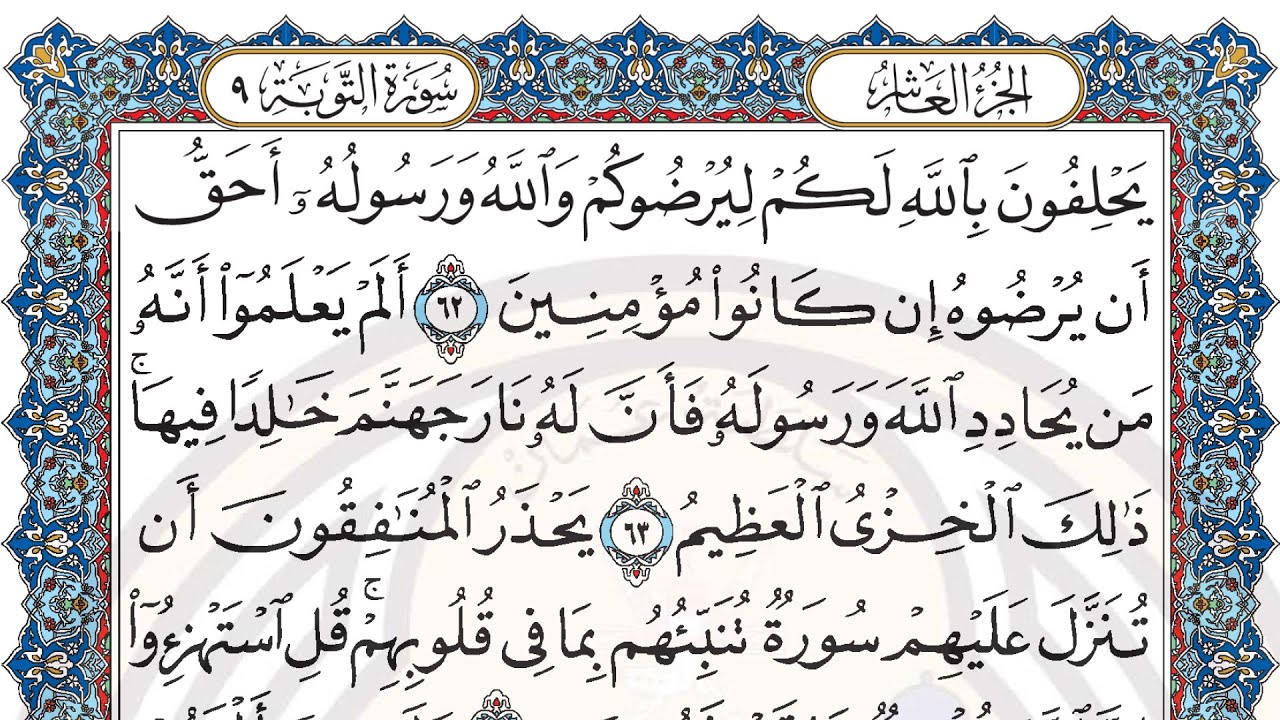 الجزء العاشر
سورة التوبة ٩
يَحْلِفُونَ بِٱللَّهِ لَكُمْ لِيُرْضُوكُمْ وَٱللَّهُ وَرَسُولُهُۥٓ أَحَقُّ
أَن يُرْضُوهُ إِن كَانُوا۟ مُؤْمِنِينَ ٦٢ أَلَمْ يَعْلَمُوٓا۟ أَنَّهُۥ
مَن يُحَادِدِ ٱللَّهَ وَرَسُولَهُۥ فَأَنَّ لَهُۥ نَارَ جَهَنَّمَ خَـٰلِدًا فِيهَا ۚ
ذَٰلِكَ ٱلْخِزْىُ ٱلْعَظِيمُ ٦٣ يَحْذَرُ ٱلْمُنَـٰفِقُونَ أَن
تُنَزَّلَ عَلَيْهِمْ سُورَةٌ تُنَبِّئُهُم بِمَا فِى قُلُوبِهِمْ ۚ قُلِ ٱسْتَهْزِءُوٓا۟